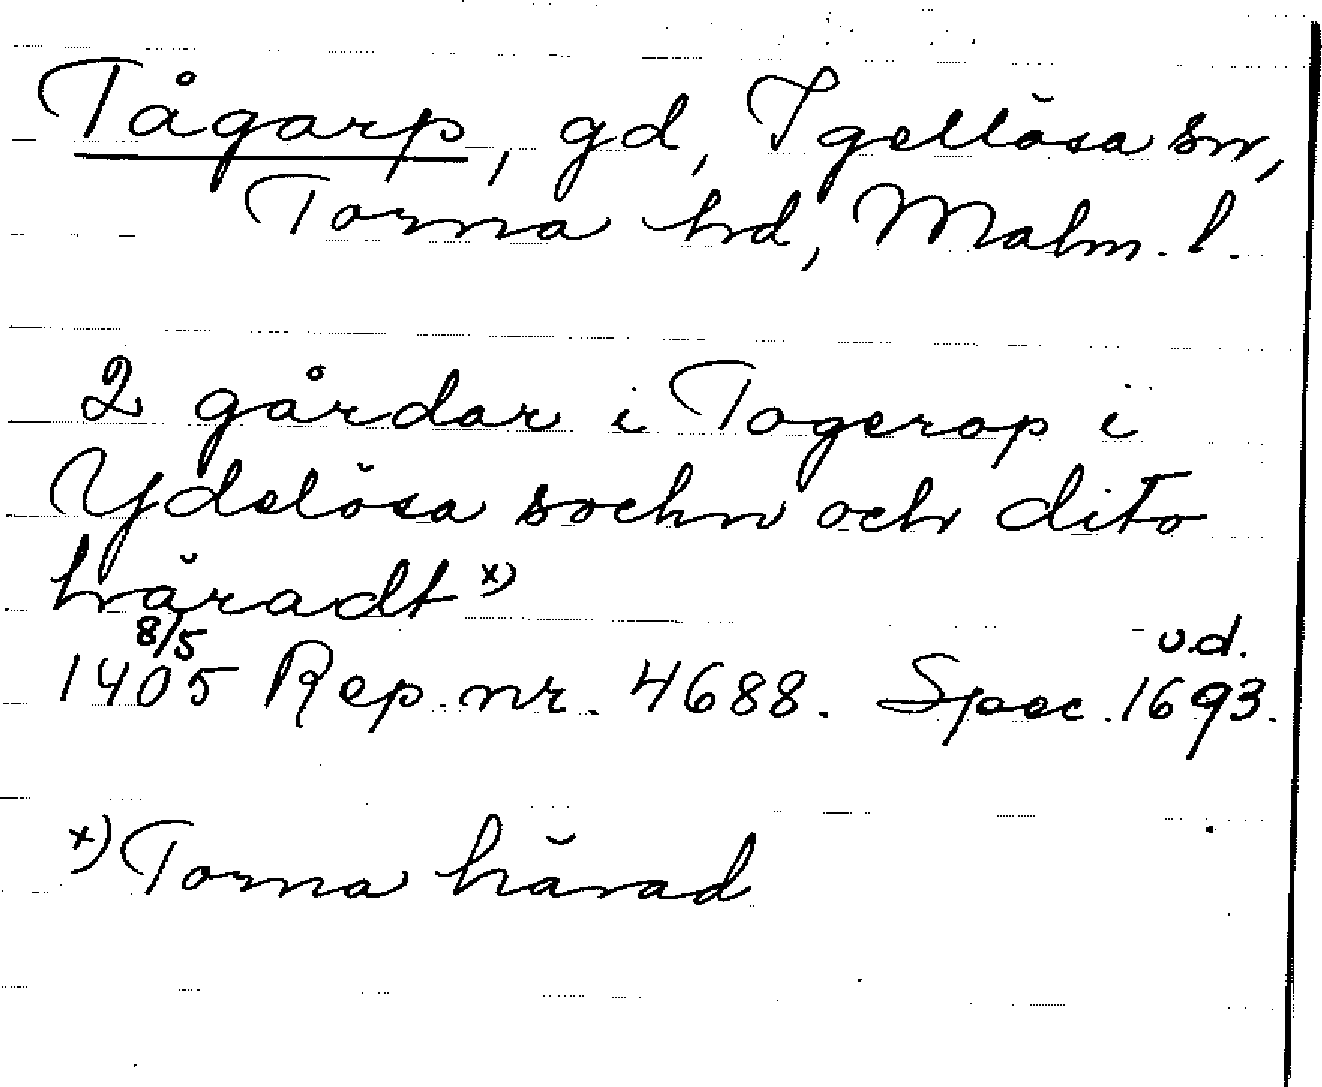 Tågarp, gd, Igellösa sn,
Torna hd, Malm. l.
2 gårdar i Togerop i
Ydelösa sochn och dito
häradt x)
8/5 u.d.
1405 Rep. nr. 4688. Spec. 1693.
x) Torna härad